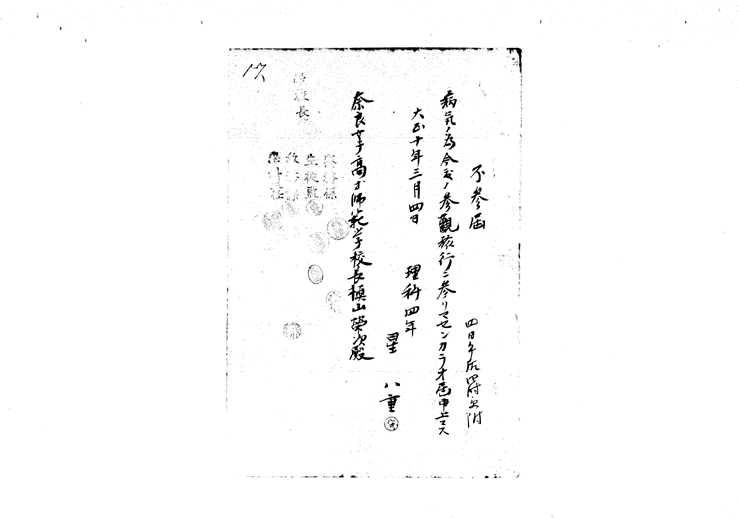 不参届
四日午后四時受附
病気ノ為今度ノ参観旅行ニ参リマセンカラオ届申上マス
大正十年三月四日
理科四年
星 八重
奈良女子高等師範学校長槇山榮次殿
学校長
生徒監
17